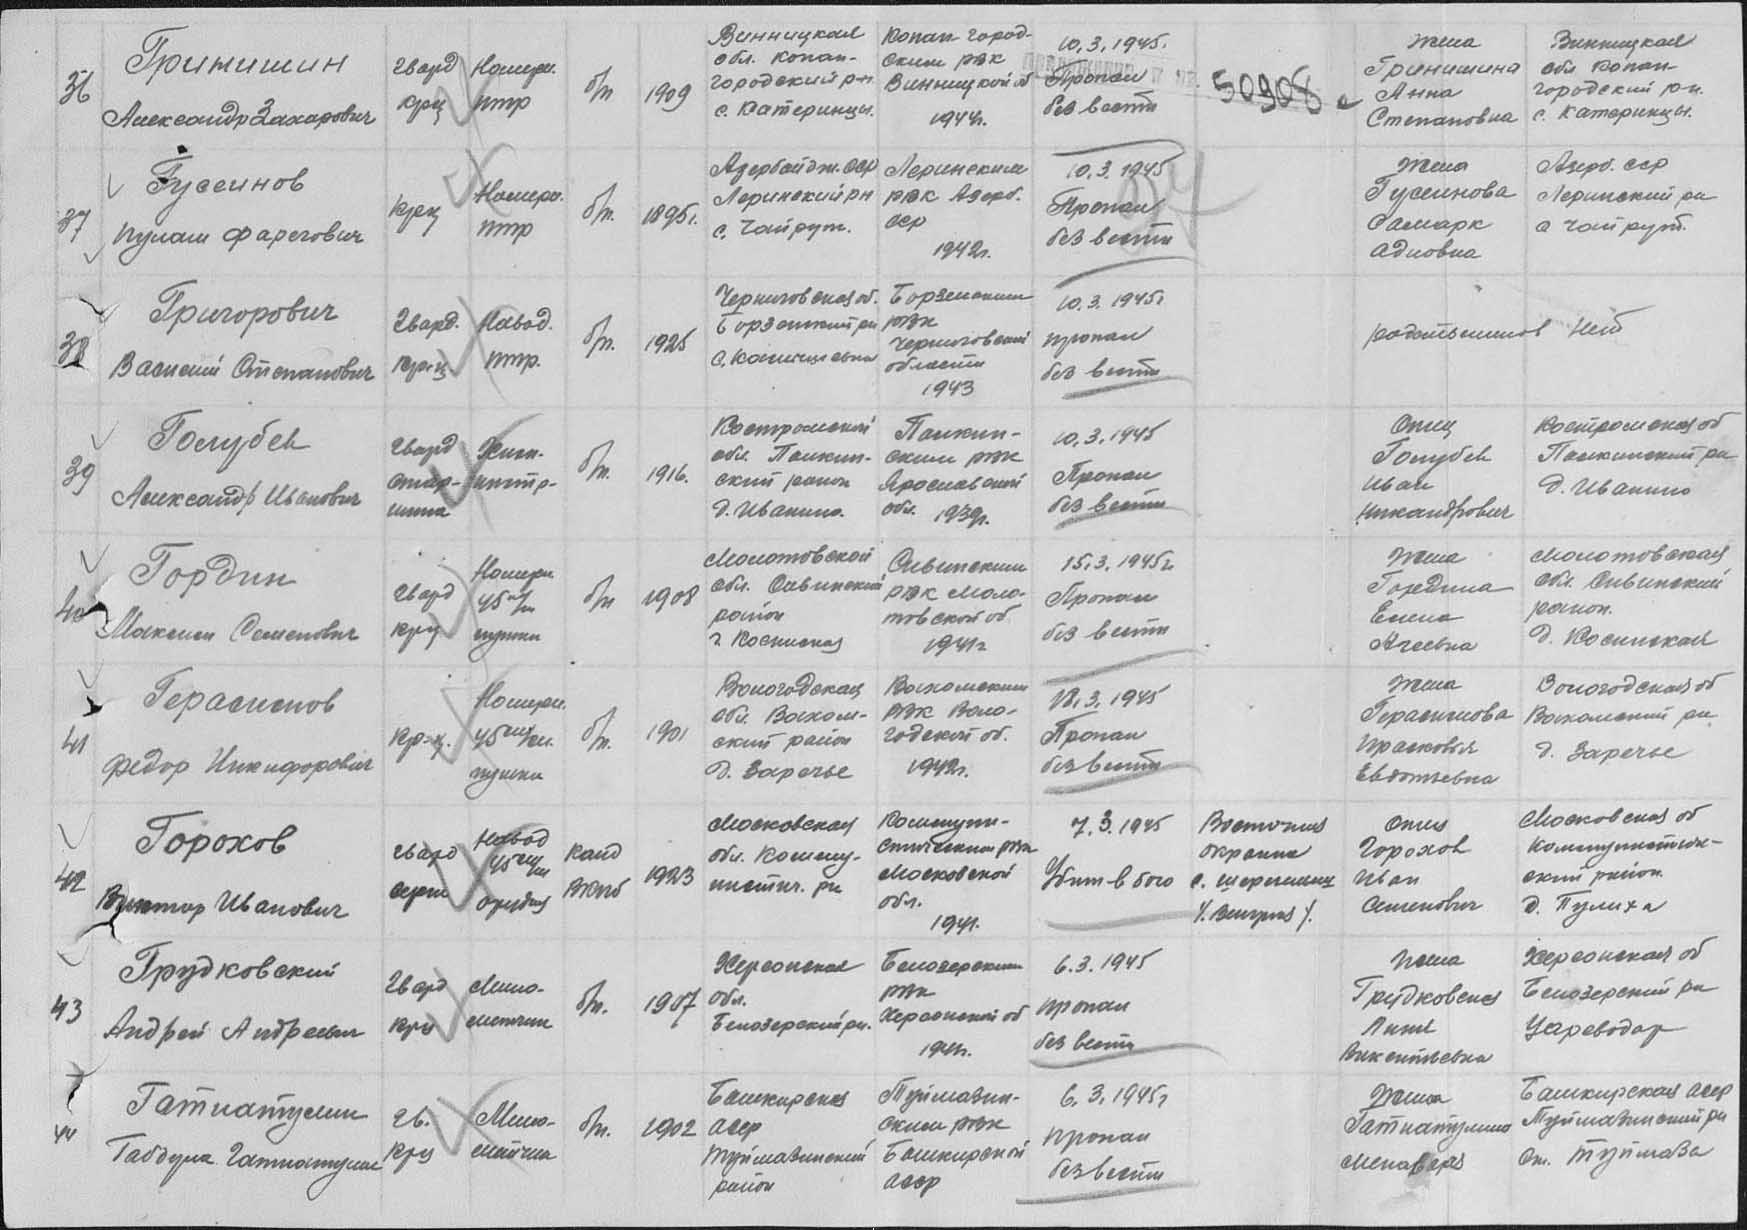 36
Гринишин
Александр Захарович
Гвард
крц
Номерн.
птр
б/п
1909
Винницкая
обл. Копай-
городский р-н.
с. Катеринцы.
Копай город-
ским рвк
Винницкой об
1944г.
10.3.1945.
Пропал
без вести
50908
жена
Гринишина
Анна
Степановна
Винницкая
обл Копай-
городский р-н.
с. Катеринцы.
37
Гусеинов
крц
Номерн.
птр
б/п.
1895г.
Азербайдж. ССР
Леринский рн
с. Чайрут.
Леринским
рвк Азерб.
сср
1942г.
10.3.1945
Пропал
без вести
жена
Гусеинова
Азерб. сср
Леринский рн
с Чайрут.
38
Григорович
Василий Степанович
Гвард.
кр-ц
Навод.
птр.
б/п.
1925
Черниговская об.
Борзенский рн
Борзенским
рвк
Черниговской
области
1943
10.3.1945г
пропал
без вести
родственников нет
39
Голубев
Александр Иванович
Гвард
стар-
шина
Хим.
инстр-
б/п.
1916.
Костромской
обл.
ский район
д. Иванино.
ским рвк
Ярославской
обл. 1939г.
10.3.1945
Пропал
без вести
Отец
Голубев
Иван
Никандрович
Костромская об
д. Иванино
40
Гордин
Максим Семенович
Гвард
крц
Номерн
45 м/м
пушки
б/п
1908
Молотовской
обл. Сивинский
район
Сивинским
рвк Моло-
товской об.
1941г
15.3.1945г
Пропал
без вести
жена
Гордина
Елена
Молотовская
обл. Сивинский
район.
д. Косинская
41
Герасимов
Федор Никифорович
кр-ц.
Номерн.
45 мм/м.
пушки
б/п.
1901
Вологодская
обл. Вохом-
ский район
д. Заречье
Вохомским
рвк Воло-
годской об.
1942г.
18.3.1945
Пропал
без вести
жена
Герасимова
Прасковья
Евдотьевна
Вологодская об
Вохомский рн
д. Заречье
42
Горохов
Виктор Иванович
гвард
серж
Навод
45 мм/м
орудия
канд
ВКПб
1923
Московская
обл. Комму-
нистич. рн
Коммуни-
стическим рвк
Московской
обл.
1941.
7.3.1945
Убит в бою
Восточная
окраина
/. Венгрия /.
отец
Горохов
Иван
Семенович
Московская об
Коммунистиче-
ский район
д. Пулиха
43
Грудковский
Андрей Андреевич
Гвард
крц
Мино-
метчик
б/п.
1907
Херсонская
обл.
Белозерский рн.
Белозерским
рвк
Херсонской об
1941г.
6.3.1945
пропал
без вести
жена
Грудковская
Викентьевна
Херсонская об
Белозерский рн
44
Гатиатулин
Габдула Гатиатулин
гв.
крц
Мино-
метчик
б/п.
1902
Башкирская
асср
Туймазинский
район
Туймазин-
ским рвк
Башкирской
асср
6.3.1945г
пропал
без вести
жена
Гатиатулина
Башкирская асср
Туймазинский рн
ст. Туймаза